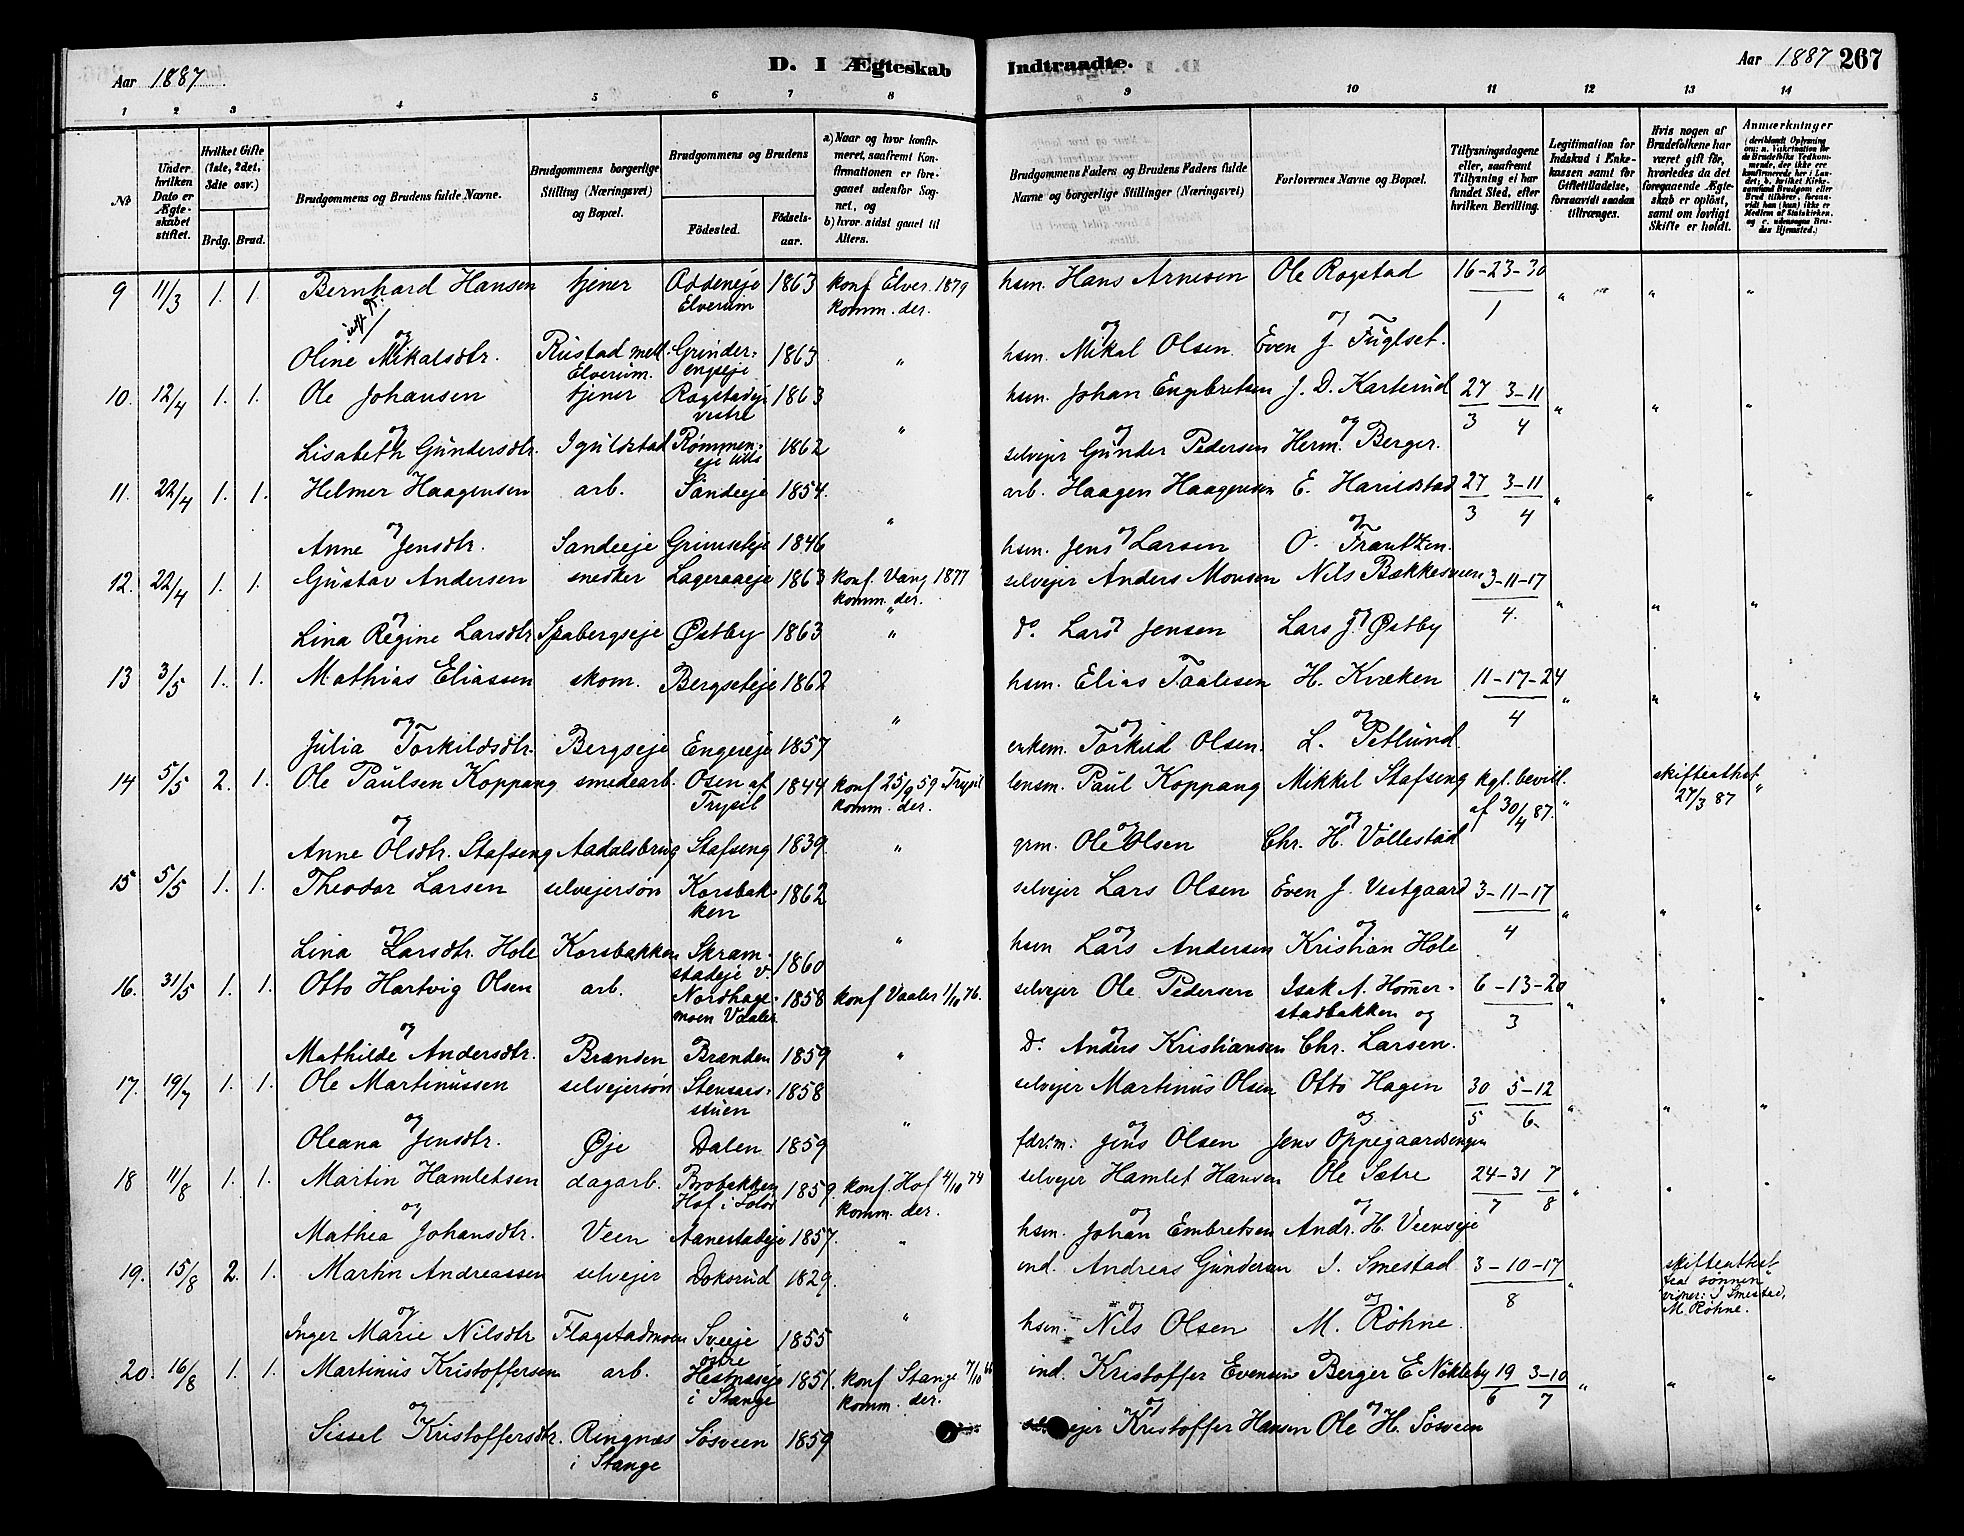 Aar 1887
D. I Ægteskab
Indtraadte.
Aar 1887 267
1 2 3 4 5 6 7 8
9 10 11 12 13 14
No
Under hvilken Dato er Ægteskabet stiftet.
Hvilket Gifte (1ste, 2det, 3die osv.)
Brdg. Brud.
Brudgommens og Brudens fulde Navne.
Brudgommens borgerlige Stilling (Næringsvei) og Bopæl.
Brudgommens og Brudens
Födested. Födsels-aar.
a) Naar og hvor konfirmeret, saafremt Konfirmationen er foregaaet udenfor Sognet, og
b) hvor sidst gaaet til Alters.
Brudgommens Faders og Brudens Faders fulde Navne og borgerlige Stillinger (Næringsvei)
Forlovernes Navne og Bopæl.
Tillysningsdagene eller, saafremt Tillysning ei har fundet Sted, efter hvilken Bevilling.
Legitimation for Indskud i Enkekassen samt for Giftetilladelse, forsaavidt saadan tiltrænges.
Hvis nogen af Brudefolkene har været gift för, hvorledes da det foregaaende Ægteskab er oplöst, samt om lovligt Skifte er holdt.
Anmærkninger
9 11/3 1. 1. Bernhard Hansen tjener Oddeneje Elverum 1863 konf Elver. 1879 komm. der. hsm. Hans Arnesen Ole Rogstad 16-23-30/1 " " "
og
Oline Mikalsdtr. Rustad mell. Elverum. Grinderengseje 1863 " hsm. Mikal Olsen Even J. Fuglset.
10. 12/4 1. 1. Ole Johansen tjener Rogstadeje vestre 1863 hsm. Johan Engebretsen J. D. Karterud 27/3 3-11/4 " " "
og
Lisabeth Gundersdtr. Igulstad Rømmeneje 1862 " selvejer Gunder Pedersen Herm. Berger.
11. 22/4 1. 1. Helmer Haagensen arb. Sandeeje 1854. arb. Haagen Haagensen E. Harildstad 27/3 3-11/4 " " "
og
Anne Jensdtr. Sandeeje Grimseteje 1846 " hsm. Jens Larsen O. Frantzen.
12. 22/4 1. 1. Gustav Andersen snedker Lageraaeje 1863 konf. Vang 1877 komm. der. selvejer Anders Monsen Nils Bækkeveen 3-11-17/4. " " "
og
Lina Regine Larsdtr Spabergseje Østby 1863 " do. Lars Jensen Lars J. Østby
13 3/5 1. 1. Mathias Eliassen skom. Bergseteje 1862 hsm. Elias Taalesen H. Kvæken 11-17-24/4 " " "
og
Julia Torkildsdtr. Bergseje Engeseje 1857 " enkem. Torkild Olsen. L. Petlund
14 5/5 2. 1. Ole Paulsen Koppang smedearb. Osen af Trysil 1844 konf 25/9 59 Trysil komm. der. lensm. Paul Koppang Mikkel Stafseng kgl. bevill. af 30/4 87. " skifteattest 27/3 87 "
og
Anne Olsdtr. Stafseng Aadalsbrug Stafseng 1839 " grm. Ole Olsen Chr. H. Vollestad
15 5/5 1. 1. Theodor Larsen selvejersøn Korsbakken 1862 selvejer Lars Olsen Even J. Vestgaard 3-11-17/4 " " "
og
Lina Larsdtr. Hole Korsbakken Skramstadeje v. 1860 " hsm Lars Andersen Kristian Hole
16. 31/5 1. 1. Otto Hartvig Olsen arb. Nordhagemoen Vaaler 1858 konf Vaaler 1/10 76. selvejer Ole Pedersen Isak A. Hommerstadbakken og 6-13-20/3 " " "
og
Mathilde Andersdtr. Brænden Brænden 1859 " Do. Anders Kristiansen Chr. Larsen.
17. 19/7 1. 1. Ole Martinussen selvejersøn Stensaasstuen 1858 selvejer Martinus Olsen Otto Hagen 30/5 5-12/6. " " "
og
Oleana Jensdtr. Øje Dalen 1859 " Jens Olsen Jens Oppegaardsengen
18 11/8 1. 1. Martin Hamletsen dagarb. Brobakken Hof i Solør 1859. konf. Hof 4/10 74 komm. der. selvejer Hamlet Hansen Ole Sætre 24-31/7 7/8 " " "
og
Mathea Johansdtr. Veen Aanestadeje 1857. " hsm. Johan Embretsen Andr. H. Veenseje
19. 15/8 2. 1. Martin Andreassen selvejer Doksrud 1829. ind. Andreas Gundersen J. Smestad 3-10-17/8 " skifteattest fra sønnen J Smestad, M. Røhne.
og
Inger Marie Nilsdtr Flagstadmoen Sveeje øvre 1855 " hsm. Nils Olsen M. Røhne.
20. 16/8 1. 1. Martinus Kristoffersen arb. Hestnæseje i Stange 1851. konf Stange 7/10 66 komm. der. ind. Kristoffer Evensen Berger E Nokleby 19/6 3-10/7 " " "
og
Sissel Kristoffersdtr. Ringnæs i Stange Søsveen 1859 selvejer Kristoffer Hansen Ole H. Søsveen